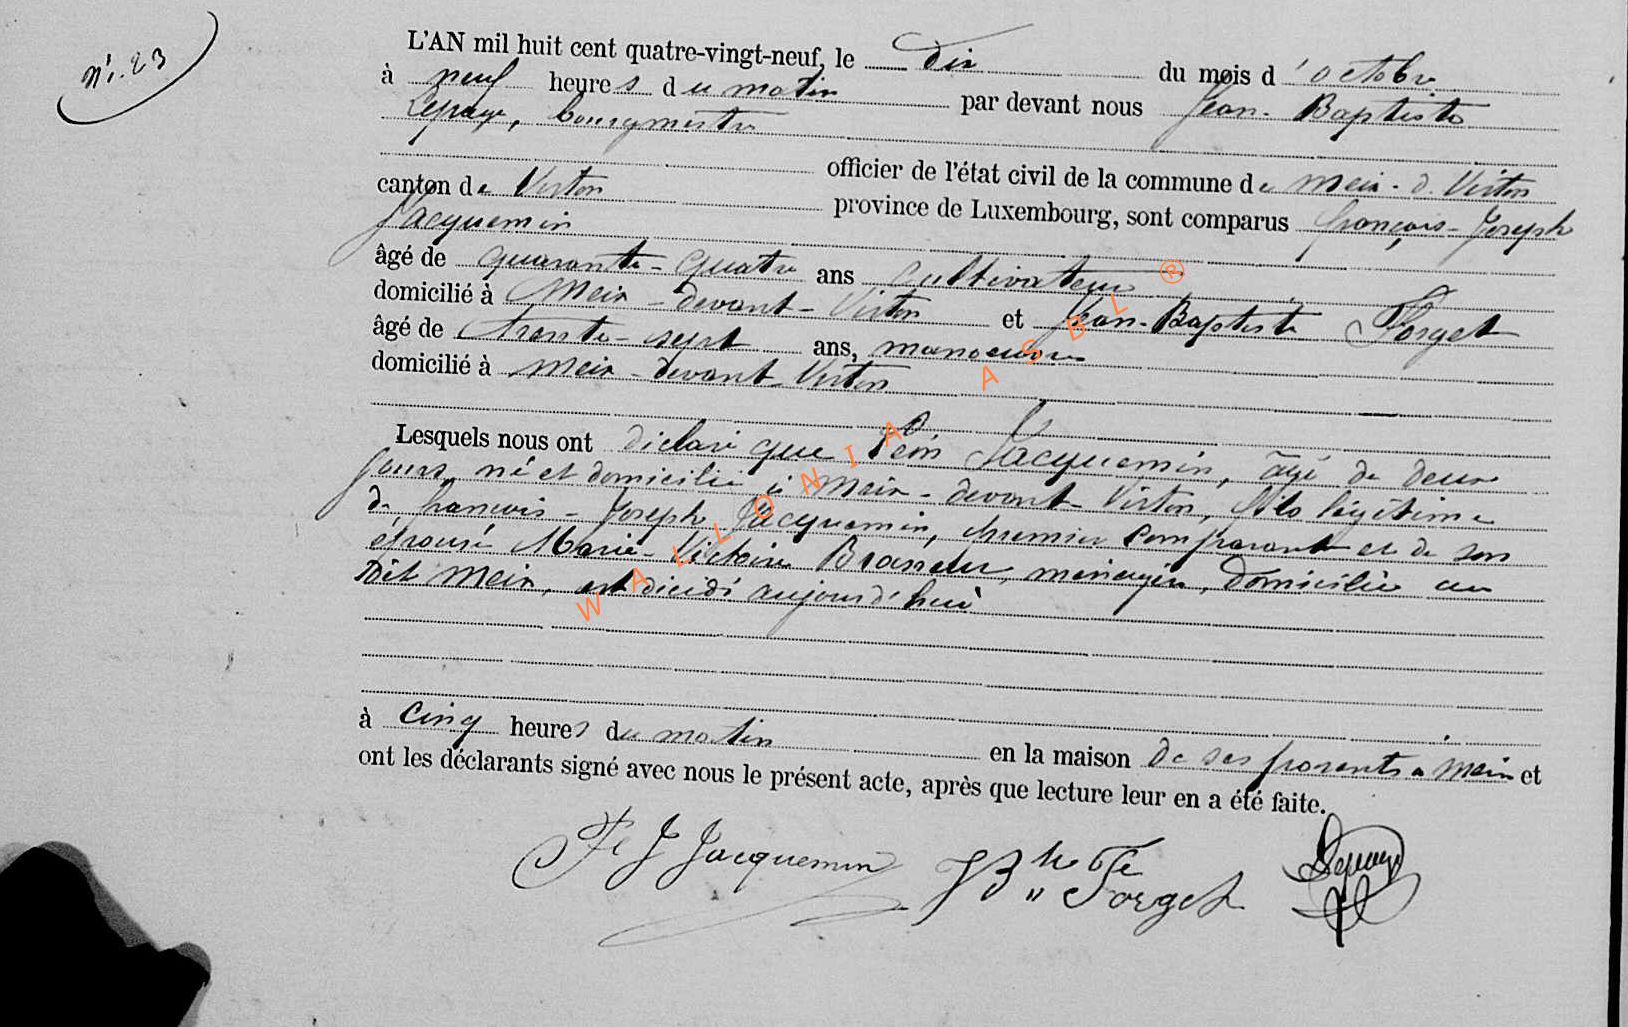 n°. 23
L'AN mil huit cent quatre-vingt-neuf, le dix du mois d'octobre
à neuf heures du matin par devant nous Jean-Baptiste
Lepage, bourgmestre
officier de l'état civil de la commune de Meix-d. Virton
canton de Virton province de Luxembourg, sont comparus françois-Joseph
Jacquemin
âgé de quarante-quatre ans cultivateur
domicilié à Meix-devant-Virton et Jean-Baptiste Forget
âgé de trente-sept ans, manoeuvre
domicilié à Meix-devant-Virton
Lesquels nous ont déclaré que Jacquemin, âgé de deux
jours, né et domicilié à Meix-devant-Virton, fils légitime
de francois-Joseph Jacquemin, premier comparant et de son
épouse Marie-Victoire ménagère, domiciliée au
dit Meix, est décédé aujourd'hui
à cinq heures du matin en la maison de ses parents à Meix et
ont les déclarants signé avec nous le présent acte, après que lecture leur en a été faite.
F J Jacquemin JBte Forget Lepage
WALLONIA ASBL ®